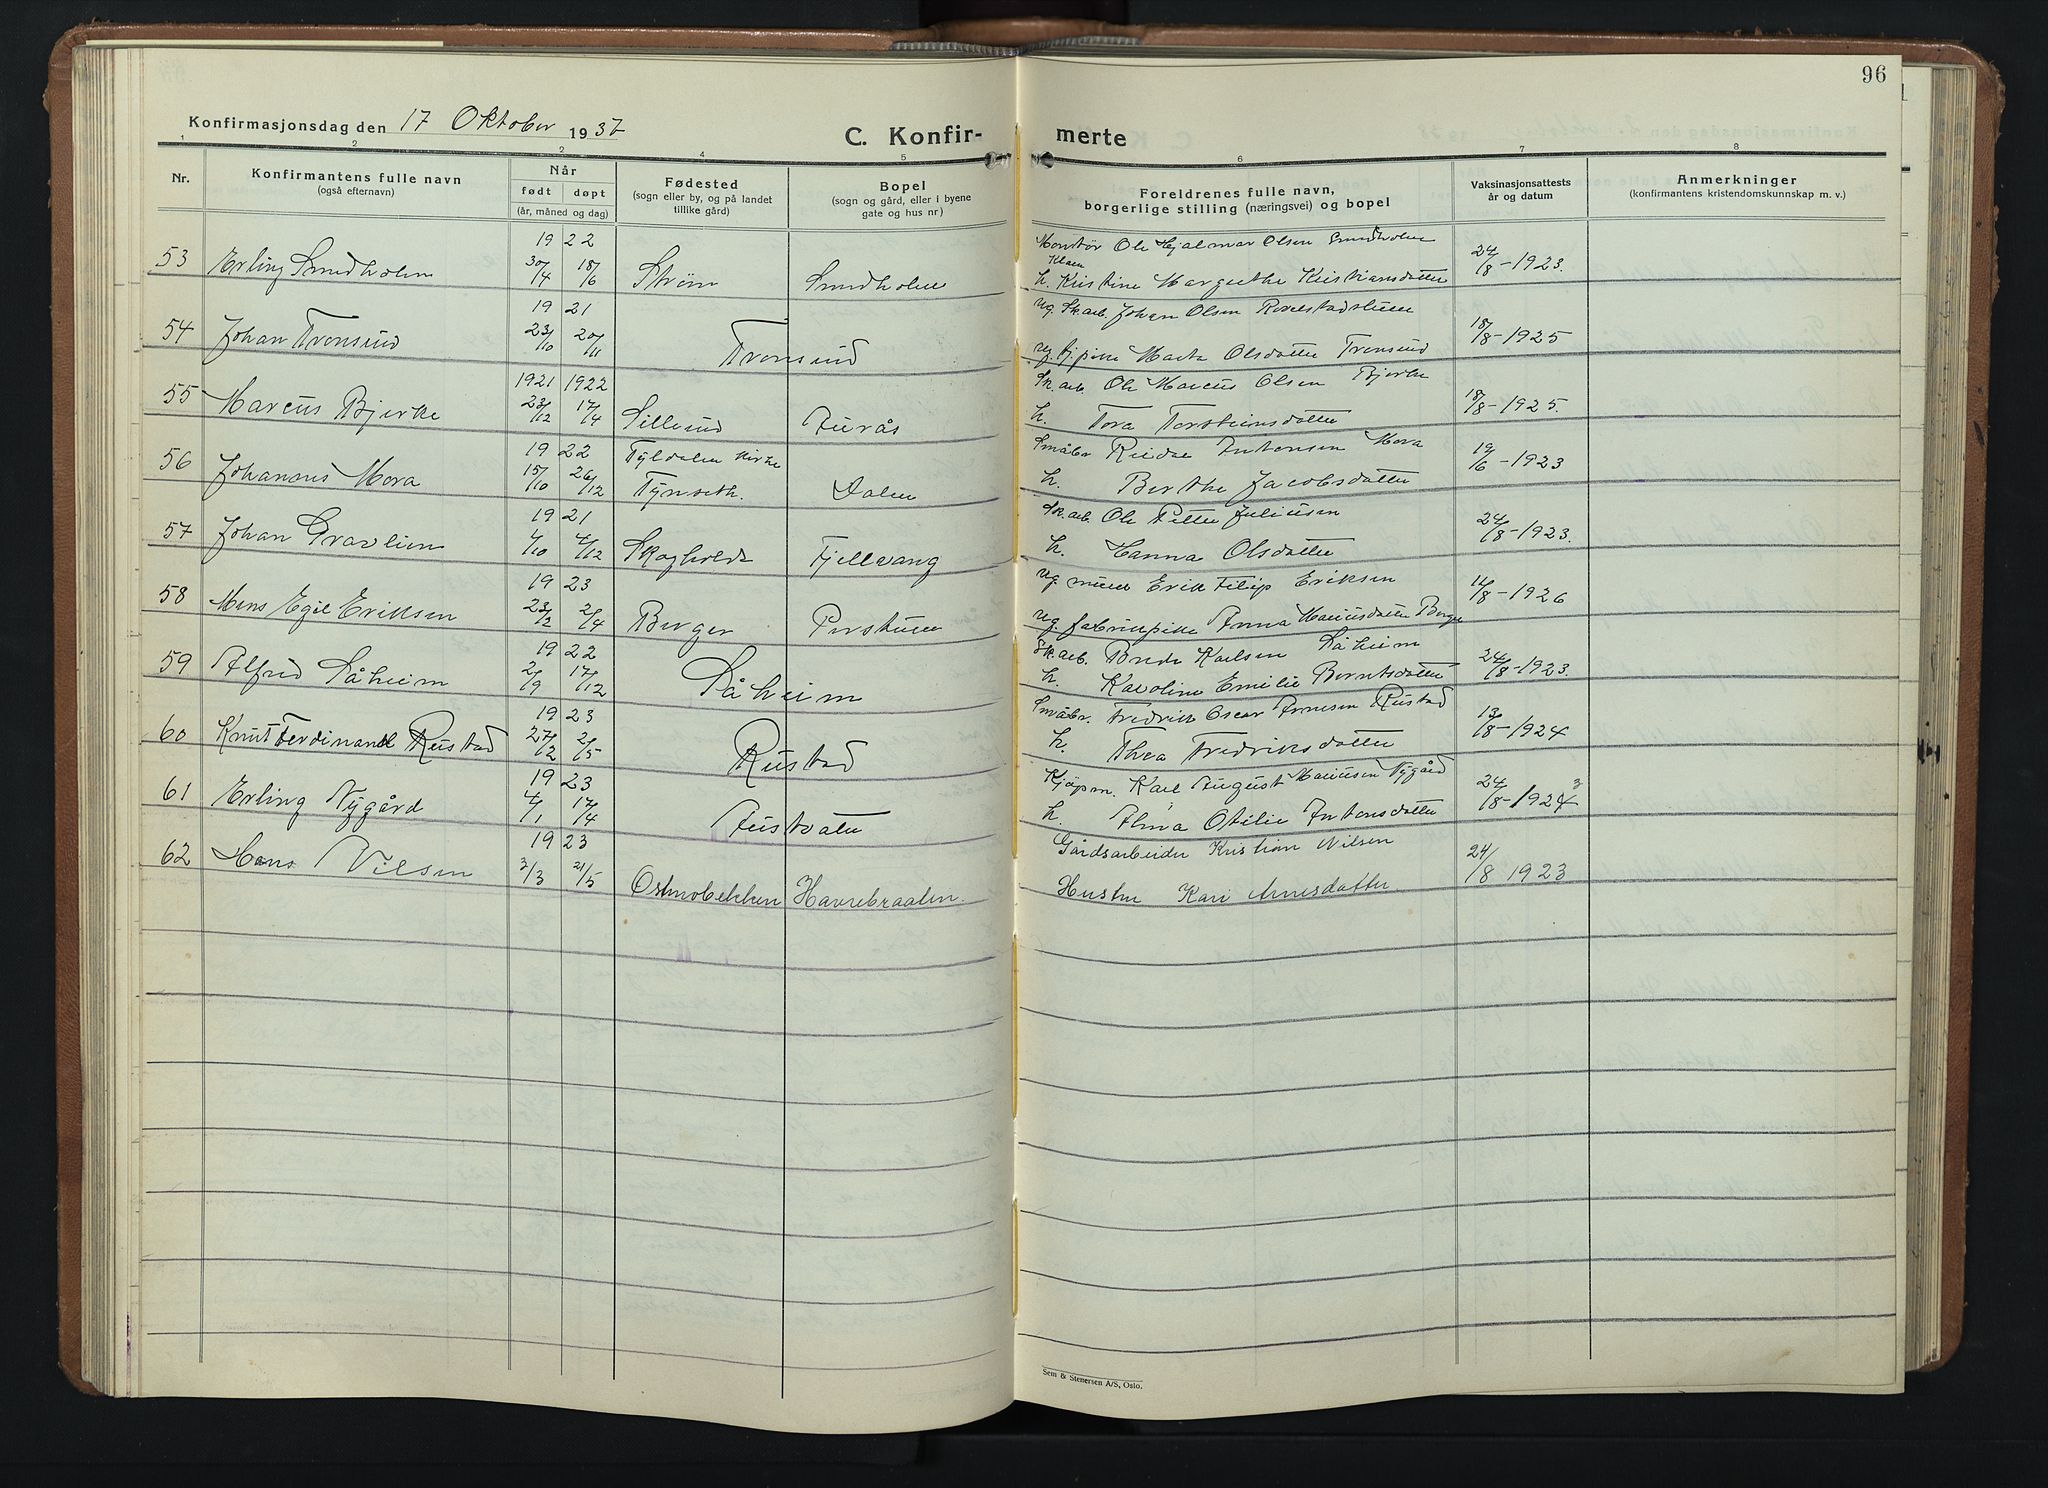 96
Konfirmasjonsdag den 17 Oktober 1937
C. Konfir-
merte
1 2 2 4 5
6 7 8
Nr.
Konfirmantens fulle navn
(også efternavn)
Når
født døpt
(år, måned og dag)
Fødested
(sogn eller by, og på landet
tillike gård)
Bopel
(sogn og gård, eller i byene
gate og hus nr)
Foreldrenes fulle navn,
borgerlige stilling (næringsvei) og bopel
Vaksinasjonsattests
år og datum
Anmerkninger
(konfirmantens kristendomskunnskap m. v.)
19 22
53 Erling Sundholm 30/4 18/6 Strøm Sundholm
Ole Hjalmar Olsen Sundholm
h. Kristine Margrethe Kristiansdatter
24/8-1923.
19 21
54 Johan Tronsund 23/10 20/11 Tronsund
ug. Skarb. Johan Olsen
ug. pike Marta Olsdatter Tronsund
18/8-1925
1921 1922
55 Marcus Bjerke 23/12 17/4 Sillund Aurås
Sk. arb. Ole Marcus Olsen Bjerke
h. Tora Torsteinsdatter
18/8-1925.
19 22
56 Johannes Mora 15/10 26/12 Tyldalen kirke
Tynseth. Dalen
Småbr Reidar Antonsen Mora
h. Berthe Jacobsdatter
19/6-1923
19 21
57 Johan Gravlien 4/10 4/12 Skogholdt Fjellvang
Sk. arb. Ole Petter Juliusen
h. Hanna Olsdatter
24/8-1923.
19 23
58 Mons Egil Eriksen 23/2 2/4 Berger Perstuen
ug. murer Erik Filip Eriksen
ug. fabrikpike Anna Mariusdatter Berger
14/8-1926
19 22
59 Alfred Såheim 2/9 17/12 Såheim
Sk. arb. Brede Karlsen Såheim
h. Karoline Emilie Berntsdatter
24/8-1923.
19 23
60 Knut Ferdinand Rustad 27/2 2/5 Rustad
Småbr. Fredrik Oscar Arnesen Rustad
h. Thea Fredriksdatter
13/8-1924
19 23
61 Erling Nygård 4/1 17/4 Austvatn
Kjøpm. Karl August Mariusen Nygård
h. Alma Otilie Antonsdatter
24/8-1924 3
19 23
62 Hans Nilsen 3/3 21/5 Ostmobekken Havrebraaten.
Gårdsarbeider Kristian Nilsen
Hustru Kari Arnesdatter
24/8 1923
Sem & Stenersen A/S, Oslo.